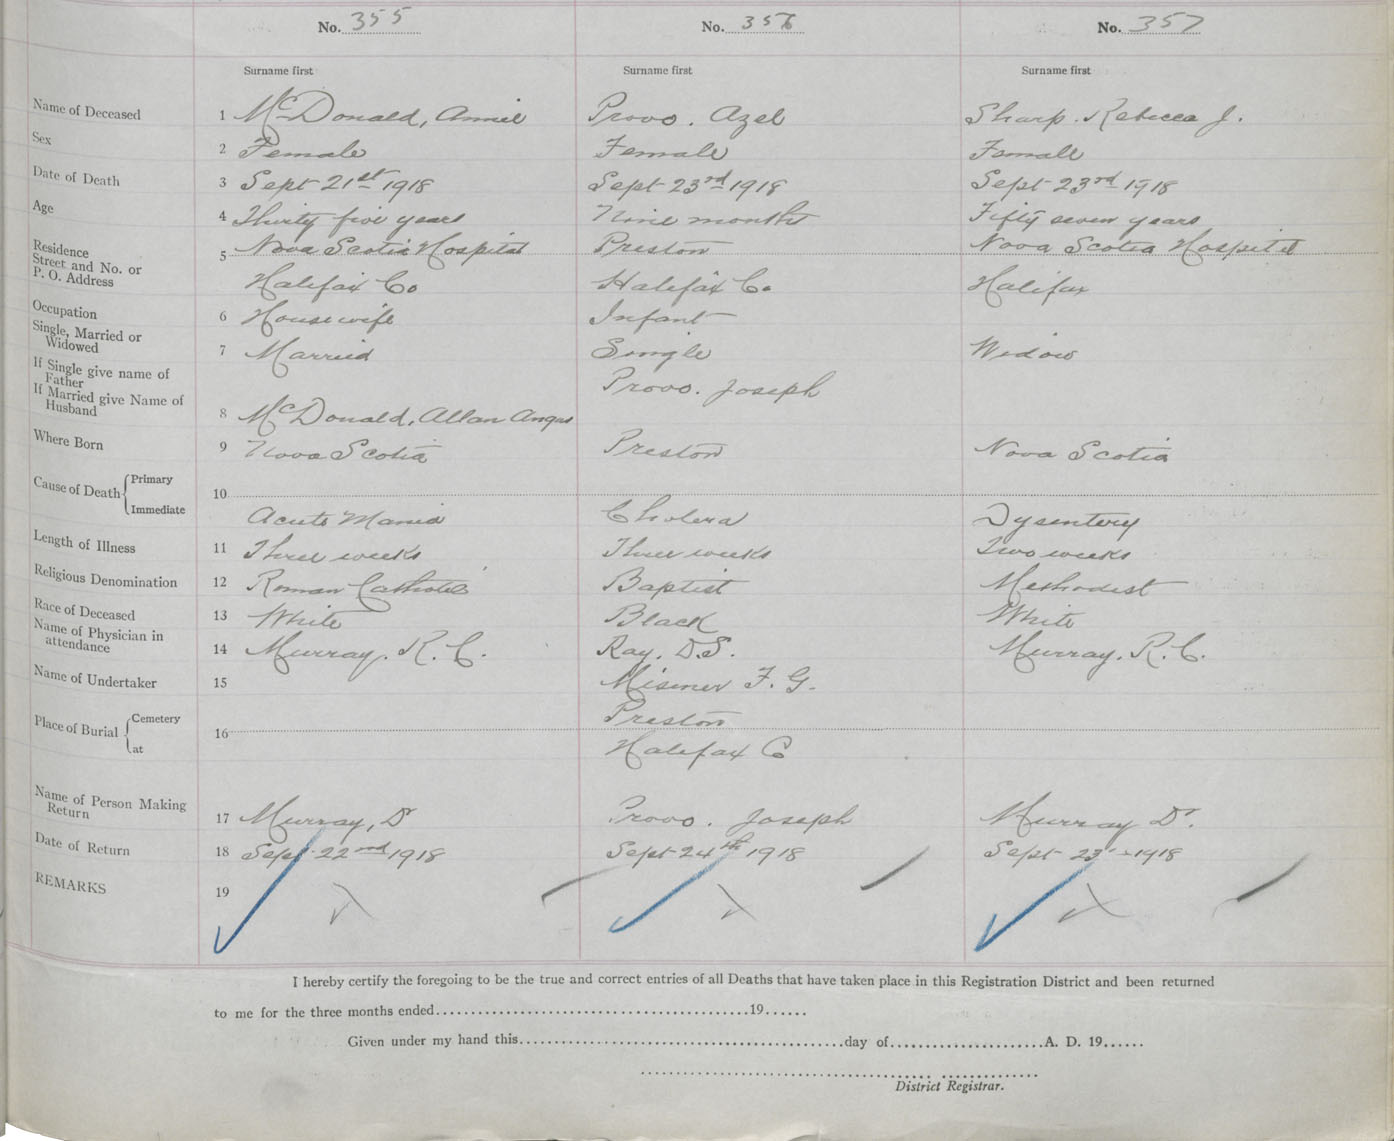 No. 355 No. 356 No. 357
Surname first Surname first Surname first
Name of Deceased 1 McDonald, Annie Provo. Azel Sharp. Rebecca J.
Sex 2 Female Female Female
Date of Death 3 Sept 21st 1918 Sept 23rd 1918 Sept 23rd 1918
Age 4 Thirty five years Nine months Fifty seven years
Residence
Street and No. or
P. O. Address
5 Nova Scotia Hospital Preston Nova Scotia Hospital
Halifax Co Halifax Co. Halifax
Occupation 6 Housewife Infant
Single, Married or
Widowed
7 Married Single Widow
If Single give name of
Father
Provo. Joseph
If Married give Name of
Husband
8 McDonald, Allan Angus
Where Born 9 Nova Scotia Preston Nova Scotia
Cause of Death Primary
10
Immediate
Acute Mania Cholera Dysentery
Length of Illness 11 Three weeks Three weeks Two weeks
Religious Denomination 12 Roman Catholic Baptist Methodist
Race of Deceased 13 White Black White
Name of Physician in
attendance
14 Murray. R. C. Ray. D.S. Murray. R. C.
Name of Undertaker 15 Misener F. G.
Place of Burial Cemetery
at
16
Preston
Halifax Co
Name of Person Making
Return
17 Murray, Dr Provo. Joseph Murray Dr.
Date of Return 18 Sept 22nd 1918 Sept 24th 1918 Sept 23rd 1918
REMARKS 19
I hereby certify the foregoing to be the true and correct entries of all Deaths that have taken place in this Registration District and been returned
to me for the three months ended..............................................19......
Given under my hand this..............................................day of......................A. D. 19......
District Registrar.